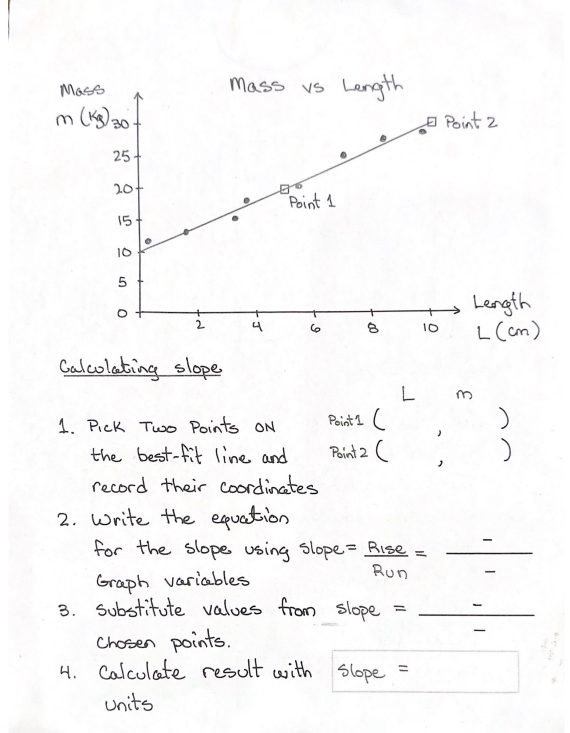 Mass vs Length
Mass
m (Kg)
30
25
20
15
10
5
0
2 4 6 8 10
Point 1
Point 2
Length
L (cm)
Calculating slope
L m
1. Pick Two Points ON Point 1 ( , )
the best-fit line and Point 2 ( , )
record their coordinates
2. Write the equation
for the slope using slope = Rise = - 
Graph variables Run -
3. Substitute values from slope = -
chosen points. -
4. Calculate result with slope =
units